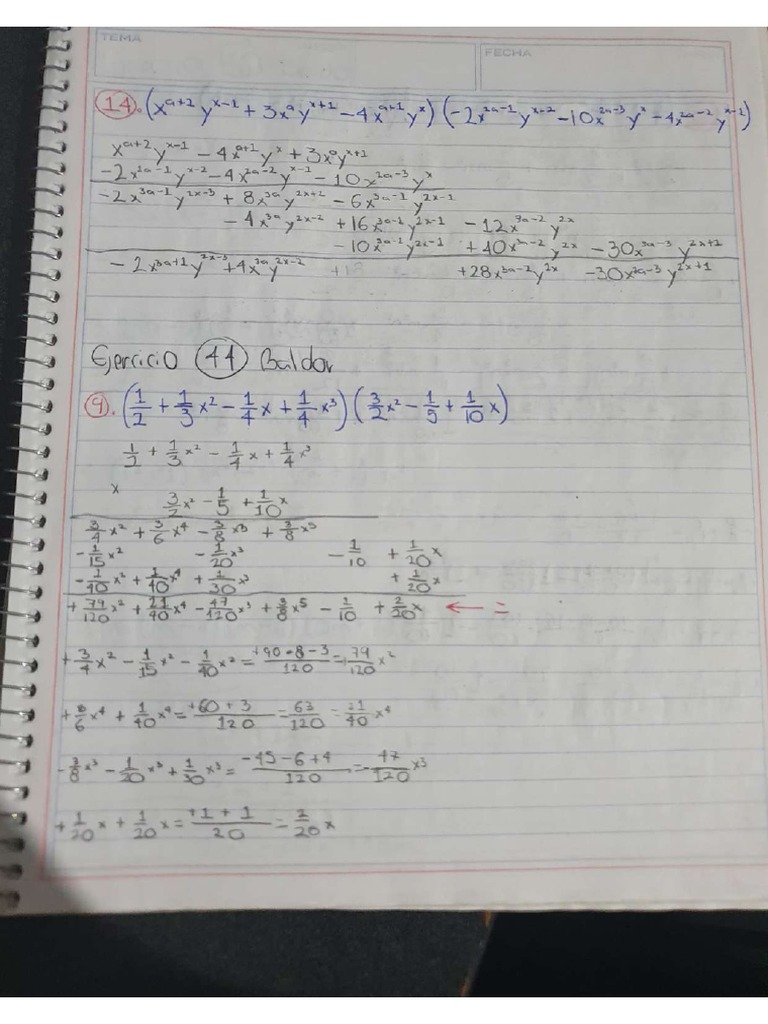 TEMA
FECHA
14. (x^{a+2} y^{x-1} + 3x^a y^{x+1} - 4x^{a+1} y^x) (-2x^{2a-1} y^{x-2} - 10x^{2a-3} y^x - 4x^{2a-2} y^{x-1})
x^{a+2} y^{x-1} - 4x^{a+1} y^x + 3x^a y^{x+1}
-2x^{2a-1} y^{x-2} - 4x^{2a-2} y^{x-1} - 10x^{2a-3} y^x
-2x^{3a-1} y^{2x-3} + 8x^{3a} y^{2x+2} - 6x^{3a-1} y^{2x-1}
- 4x^{3a} y^{2x-2} + 16x^{3a-1} y^{2x-1} - 12x^{3a-2} y^{2x}
- 10x^{3a-1} y^{2x-1} + 40x^{3a-2} y^{2x} - 30x^{3a-3} y^{2x+2}
- 2x^{3a+1} y^{2x-3} + 4x^{3a} y^{2x-2} + 28x^{3a-2} y^{2x} - 30x^{3a-3} y^{2x+1}
Ejercicio 44 Baldor
9. (1/2 + 1/3 x² - 1/4 x + 1/4 x³) (3/2 x² - 1/5 + 1/10 x)
1/2 + 1/3 x² - 1/4 x + 1/4 x³
x 3/2 x² - 1/5 + 1/10 x
3/4 x² + 3/6 x⁴ - 3/8 x³ + 3/8 x⁵
- 1/15 x² - 1/20 x³ - 1/10 + 1/20 x
- 1/40 x² + 1/40 x⁴ + 1/30 x³ + 1/20 x
+ 79/120 x² + 21/40 x⁴ - 47/120 x³ + 3/8 x⁵ - 1/10 + 2/20 x ← =
+ 3/4 x² - 1/15 x² - 1/40 x² = +90-8-3/120 = +79/120 x²
+ 3/6 x⁴ + 1/40 x⁴ = +60+3/120 = 63/120 = 21/40 x⁴
- 3/8 x³ - 1/20 x³ + 1/30 x³ = -45-6+4/120 = -47/120 x³
+ 1/20 x + 1/20 x = +1+1/20 = 2/20 x